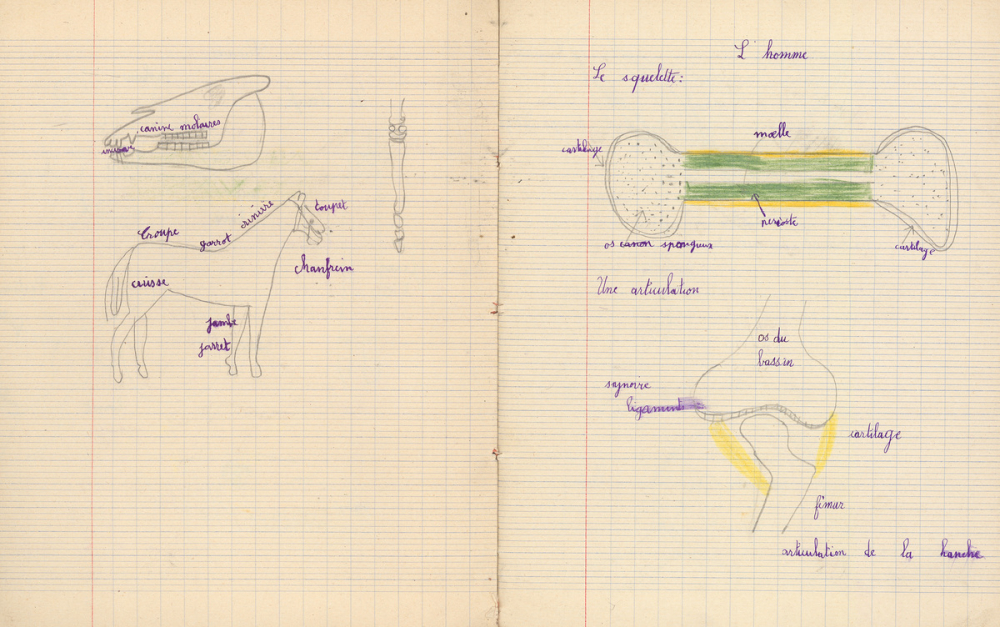 canine molaires
incisive
crinière
toupet
Croupe
garrot
chanfrein
cuisse
jambe
jarret
L'homme
Le squelette:
moelle
cartilage
perioste
os canon spongieux
cartilage
Une articulation
os du
bassin
synovie
ligament
cartilage
fémur
articulation de la hanche